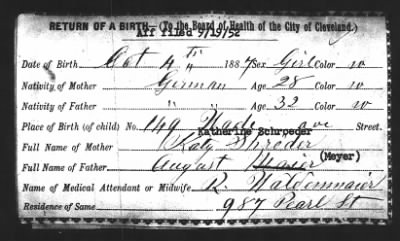 RETURN OF A BIRTH—(To the Board of Health of the City of Cleveland.)
Aff filed 9/19/52
Date of Birth Oct 4th 1887 Sex Girl Color w
Nativity of Mother German Age 28 Color w
Nativity of Father " " Age 32 Color w
Place of Birth (of child) No. 149 Wade ave Street.
Katherine Schroeder
Full Name of Mother Katy Shroder
Full Name of Father August Maier (Meyer)
Name of Medical Attendant or Midwife R. Waldenmaier
Residence of Same 987 Pearl St